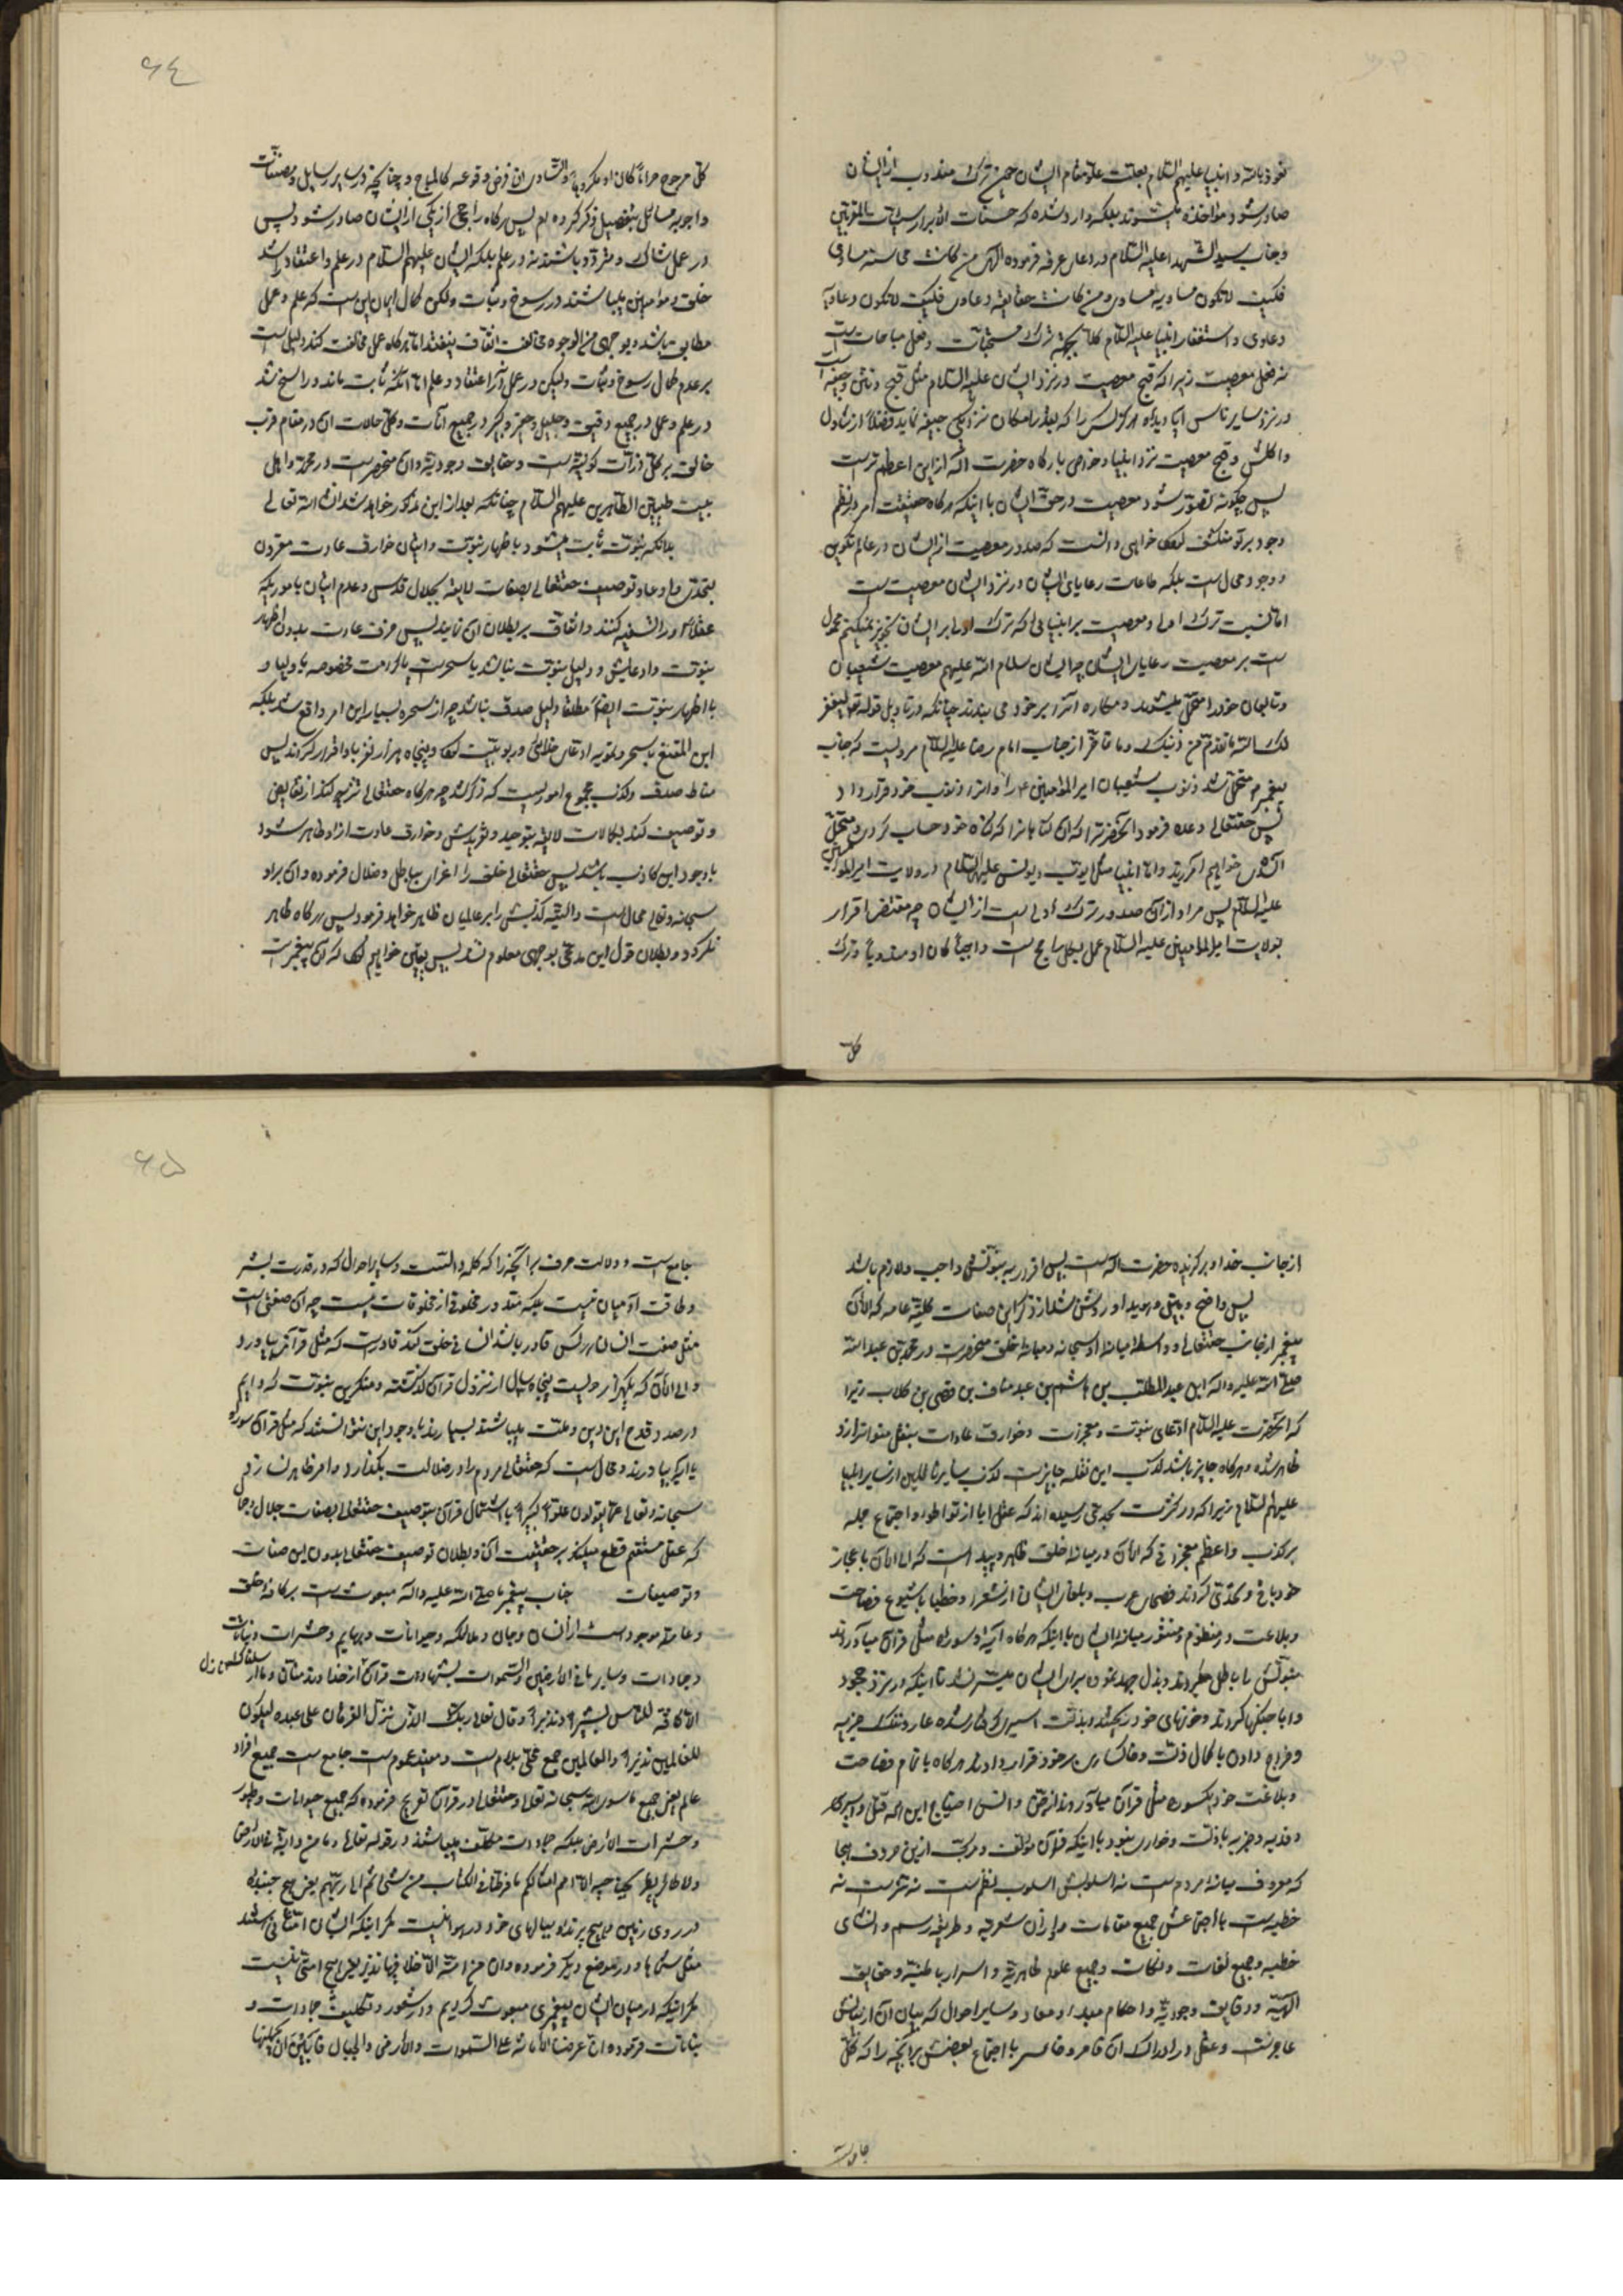 نعوذ بالله و انبیا علیهم السلام بعلت علو مقام ایشان همین ترک مندوب از ایشان
صادر شود مؤاخذه میشوند بلکه وارد شده که حسنات الابرار سیئات المقربین
و جناب سید الشهدا علیه السلام در دعای عرفه فرموده الهی من کانت محاسنه مساوی
فکیف لا تکون مساویه مساوی و من کانت حقایقه دعاوی فکیف لا تکون دعاویه
دعاوی و استغفار انبیا علیه السلام کلا بجهة ترک مستحبات و فعل مباحات است
نه فعل معصیت زیرا که قبح معصیت در نزد ایشان علیه السلام مثل قبح و نتن جیفه است
در نزد سایر ناس ایا دیده هرگز کسی را که بقدر امکان نزدیکی جیفه نماید فضلا از تناول
و اکلش و قبح معصیت نزد انبیا و خواص بارگاه حضرت اله از این اعظم تر است
پس چگونه تصور شود معصیت در حق ایشان با اینکه هرگاه حقیقت امر در نظم
وجود بر تو منکشف گردد خواهی دانست که صدور معصیت از ایشان در عالم تکوین
و وجود محال است بلکه طاعات رعایای ایشان در نزد ایشان معصیت است
اما نسبت ترک اولی و معصیت بر انبیائی که ترک اولی بر ایشان تجویز نمیکنیم محمول
است بر معصیت رعایای ایشان چه ایشان سلام الله علیهم معصیت شیعیان
و تابعان خود را متحمل میشوند و مکاره آنرا بر خود می بندند چنانکه در تاویل قوله تع لیغفر
لک الله ما تقدم من ذنبک و ما تاخر از جناب امام رضا علیه السلام مرویست که جناب
پیغمبر ص متحمل شد ذنوب شیعیان امیر المؤمنین ع را و انرا ذنوب خود قرار داد
پس حقتعالی وعده فرمود انحضرت را که ان گناهانرا که گناه خود حساب کردی و متحمل
آن شدی خواهیم آمرزید و اما انبیا مثل ایوب و یونس علیهما السلام در ولایت امیر المؤمنین
علیه السلام پس مراد از ان صدور ترک اولی است از ایشان چه مقتضا اقرار
بولایت امیر المؤمنین علیه السلام عمل بکل راجح است واجبا کان او مندوبا و ترک
کل
۶٤
کل مرجوح حراما کان او مکروها و التساوی ان فرض وقوعه کالمباح و چنانکه در سایر رسایل و مصنفات
و اجوبه مسائل بتفصیل ذکر کرده ام پس هرگاه راجحی از یکی از ایشان صادر شود پس
در عمل شاک و متردد باشند نه در علم بلکه ایشان علیهم السلام در علم و اعتقاد اشد
خلق و مؤمنین میباشند در رسوخ و ثبات ولکن کمال ایمان این است که علم و عمل
مطابق باشد و بوجهی من الوجوه مخالفت اتفاق نیفتد اما هرگاه عمل مخالفت کند دلیل است
بر عدم کمال رسوخ و ثبات ولیکن در عمل آخر اعتقاد و علم اگر نه ثابت ماند و راسخ شد
در علم و عمل در جمیع دقیق و جلیل و حقیر و کبیر در جمیع آنات و کل حالات ان در مقام قرب
خالق بر کل ذرات کونیه است و حقایق وجودیه و ان منحصر است در محمد و اهل
بیت طیبین الطاهرین علیهم السلام چنانکه بعد از این مذکور خواهد شد انشاء الله تعالی
بدانکه نبوت ثابت میشود باظهار نبوت و اتیان خوارق عادت مقرون
بتحدی و ادعا و توصیف حقتعالی بصفات لایقه بجلال قدس و عدم اتیان بامور یکه
عقلا او را تشنیع کنند و اتفاق بر بطلان ان نمایند پس خرق عادت بدون اظهار
نبوت و ادعایش و دلیل نبوت نباشد یا سحر است یا کرامت مخصوصه باولیا و
با اظهار نبوت ایضا مطلقا دلیل صدق نباشد چه از سحره بسیار این امر واقع شد بلکه
ابن المقنع با سحر و تمویه ادعای خدائی و ربوبیت کرد و پنجاه هزار نفر باو اقرار کردند پس
مناط صدق و کذب مجموع امور یست که ذکر شد چه هرگاه حقتعالی تنزیه کند از نقایص
و توصیف کند بکمالات لایقه بتوحید و تفریدش و خوارق عادات از او ظاهر شود
باوجود این کاذب باشد پس حقتعالی خلق را اغرای بباطل و ضلال فرموده و ان بر او
سبحانه و تعالی محال است و البته کذبش را بر عالمیان ظاهر خواهد فرمود پس هرگاه ظاهر
نکرد و بطلان قول این مدعی بوجهی معلوم نشد پس یقین خواهیم کرد که ان پیغمبر است
از جانب خدا و برگزیده حضرت اله است پس اقرار به نبوتش واجب و لازم باشد
پس واضح و مبین و هویدا و روشن شد از ذکر این صفات کلیه عامه که الان
پیغمبر از جانب حقتعالی و واسطه میانه او سبحانه و میانه خلق منحصر است در محمد بن عبد الله
صلی الله علیه و اله ابن عبد المطلب بن هاشم بن عبد مناف بن قصی بن کلاب زیرا
که انحضرت علیه السلام ادعای نبوت و معجزات و خوارق عادات بنقل متواتر از او
ظاهر شده و هرگاه جایز باشد کذب این نقله جایز است کذب سایر ناقلین از سایر انبیا
علیهم السلام زیرا که در کثرت بحدی رسیده اند که عقل ابا از تواطؤ و اجتماع جمله
بر کذب و اعظم معجزاتی که الان در میانه خلق ظاهر و پیدا است که الی الان باعجاز
خود باقی و تحدی کردند فصحای عرب و بلغای ایشان از شعرا و خطبا با شیوع فصاحت
و بلاغت و منظوم و منثور میانه ایشان با اینکه هرگاه آیه او سوره مثل قران میآوردند
نبوتش را باطل میکردند و بذل جهد نموده برای ایشان میسر نشد تا اینکه در نزد عجز خود
و ابا جنگها کردند و خونهای خود ریختند و بذلت اسیری گرفتار شده عار و ننک جزیه
و خراج دادن با کمال ذلت و خاکساری بر خود قرار دادند هرگاه با تمام فصاحت
و بلاغت خود یکسوره مثل قرآن میآوردند از جن و انس احتیاج این همه قتل و اسیر کار
و فدیه و جزیه با ذلت و خواری نبود با اینکه قرآن مؤلف و مرکب از این حروف هجا
که معروف میانه مردم است نه اسلوبش اسلوب نظم است نه نثر است نه
خطبه است با اجتماعش جمیع مقامات و اوزان شعریه و طریقه رسم و انشای
خطبه و جمیع لغات و نکات و جمیع علوم ظاهریه و اسرار باطنیه و حقایق
الهیه و دقایق وجودیه و احکام مبدا و معاد و سایر احوال که بیان آن از بیانش
عاجز است و عقل در ادراک ان قاصر و خاسر با اجتماع بعضش بر آنچه را که کل
جامع است
۶۵
جامع است و دلالت حرف بر آنچه را که کلمه دانست و سایر احوال که در قدرت بشر
و طاقت آدمیان نیست بلکه مقدور مخلوقی از مخلوقات نیست چه ان صفتی است
مثل صفت انسان هر کس قادر باشد انسانی خلق کند قادر است که مثل قرآن بیاورد
و الی الان که یکهزار و دویست پنجاه سال از نزول قرآن گذشته و منکرین نبوت که دایم
درصدد قدح این دین و ملت میباشند بسیارند با وجود این نتوانستند که مثل قرآن سوره
یا ایه بیاورند و محال است که حقتعالی مردم را در ضلالت بگذارد و امر ظاهر نسازد
سبحانه و تعالی عما یقولون علوا کبیرا با اشتمال قرآن بتوصیف حقتعالی بصفات جلال و جمال
که عقل مستقیم قطع میکند بر حقیقت آن و بطلان توصیف حقتعالی بدون این صفات
و توصیفات جناب پیغمبر ما صلی الله علیه و اله مبعوث است بر کافه خلق
و عامه موجودات از انسان و جان و ملائکه و حیوانات و بهایم و حشرات و نباتات
و جمادات و سایر ما فی الارضین و السموات بشهادت قرآن از خداوند منان و ما ارسلناک
الا کافة للناس بشیرا و نذیرا و قال تعالی تبارک الذی نزل الفرقان علی عبده لیکون
للعالمین نذیرا و العالمین جمع محلی بلام است و مفید عموم است جامع است جمیع افراد
عالم یعنی جمیع ما سوی الله سبحانه تعالی و حقتعالی در قرآن تصریح فرموده که جمیع حیوانات و طیور
و حشرات الارض بلکه جمادات مکلف میباشند در قوله تعالی و ما من دابة فی الارض
ولا طائر یطیر بجناحیه الا امم امثالکم ما فرطنا فی الکتاب من شئ ثم الی ربهم یعنی هیچ جنبنده
در روی زمین و هیچ پرنده ببالهای خود در هوا نیست مگر اینکه ایشان امتهائی هستند
مثل شما و در موضع دیگر فرموده و ان من امة الا خلا فیها نذیر یعنی هیچ امتی نیست
مگر اینکه در میان ایشان پیغمبری مبعوث کردیم و در شعور و تکلیف جمادات و
نباتات فرموده انا عرضنا الامانة علی السموات و الارض و الجبال فابین ان یحملنها